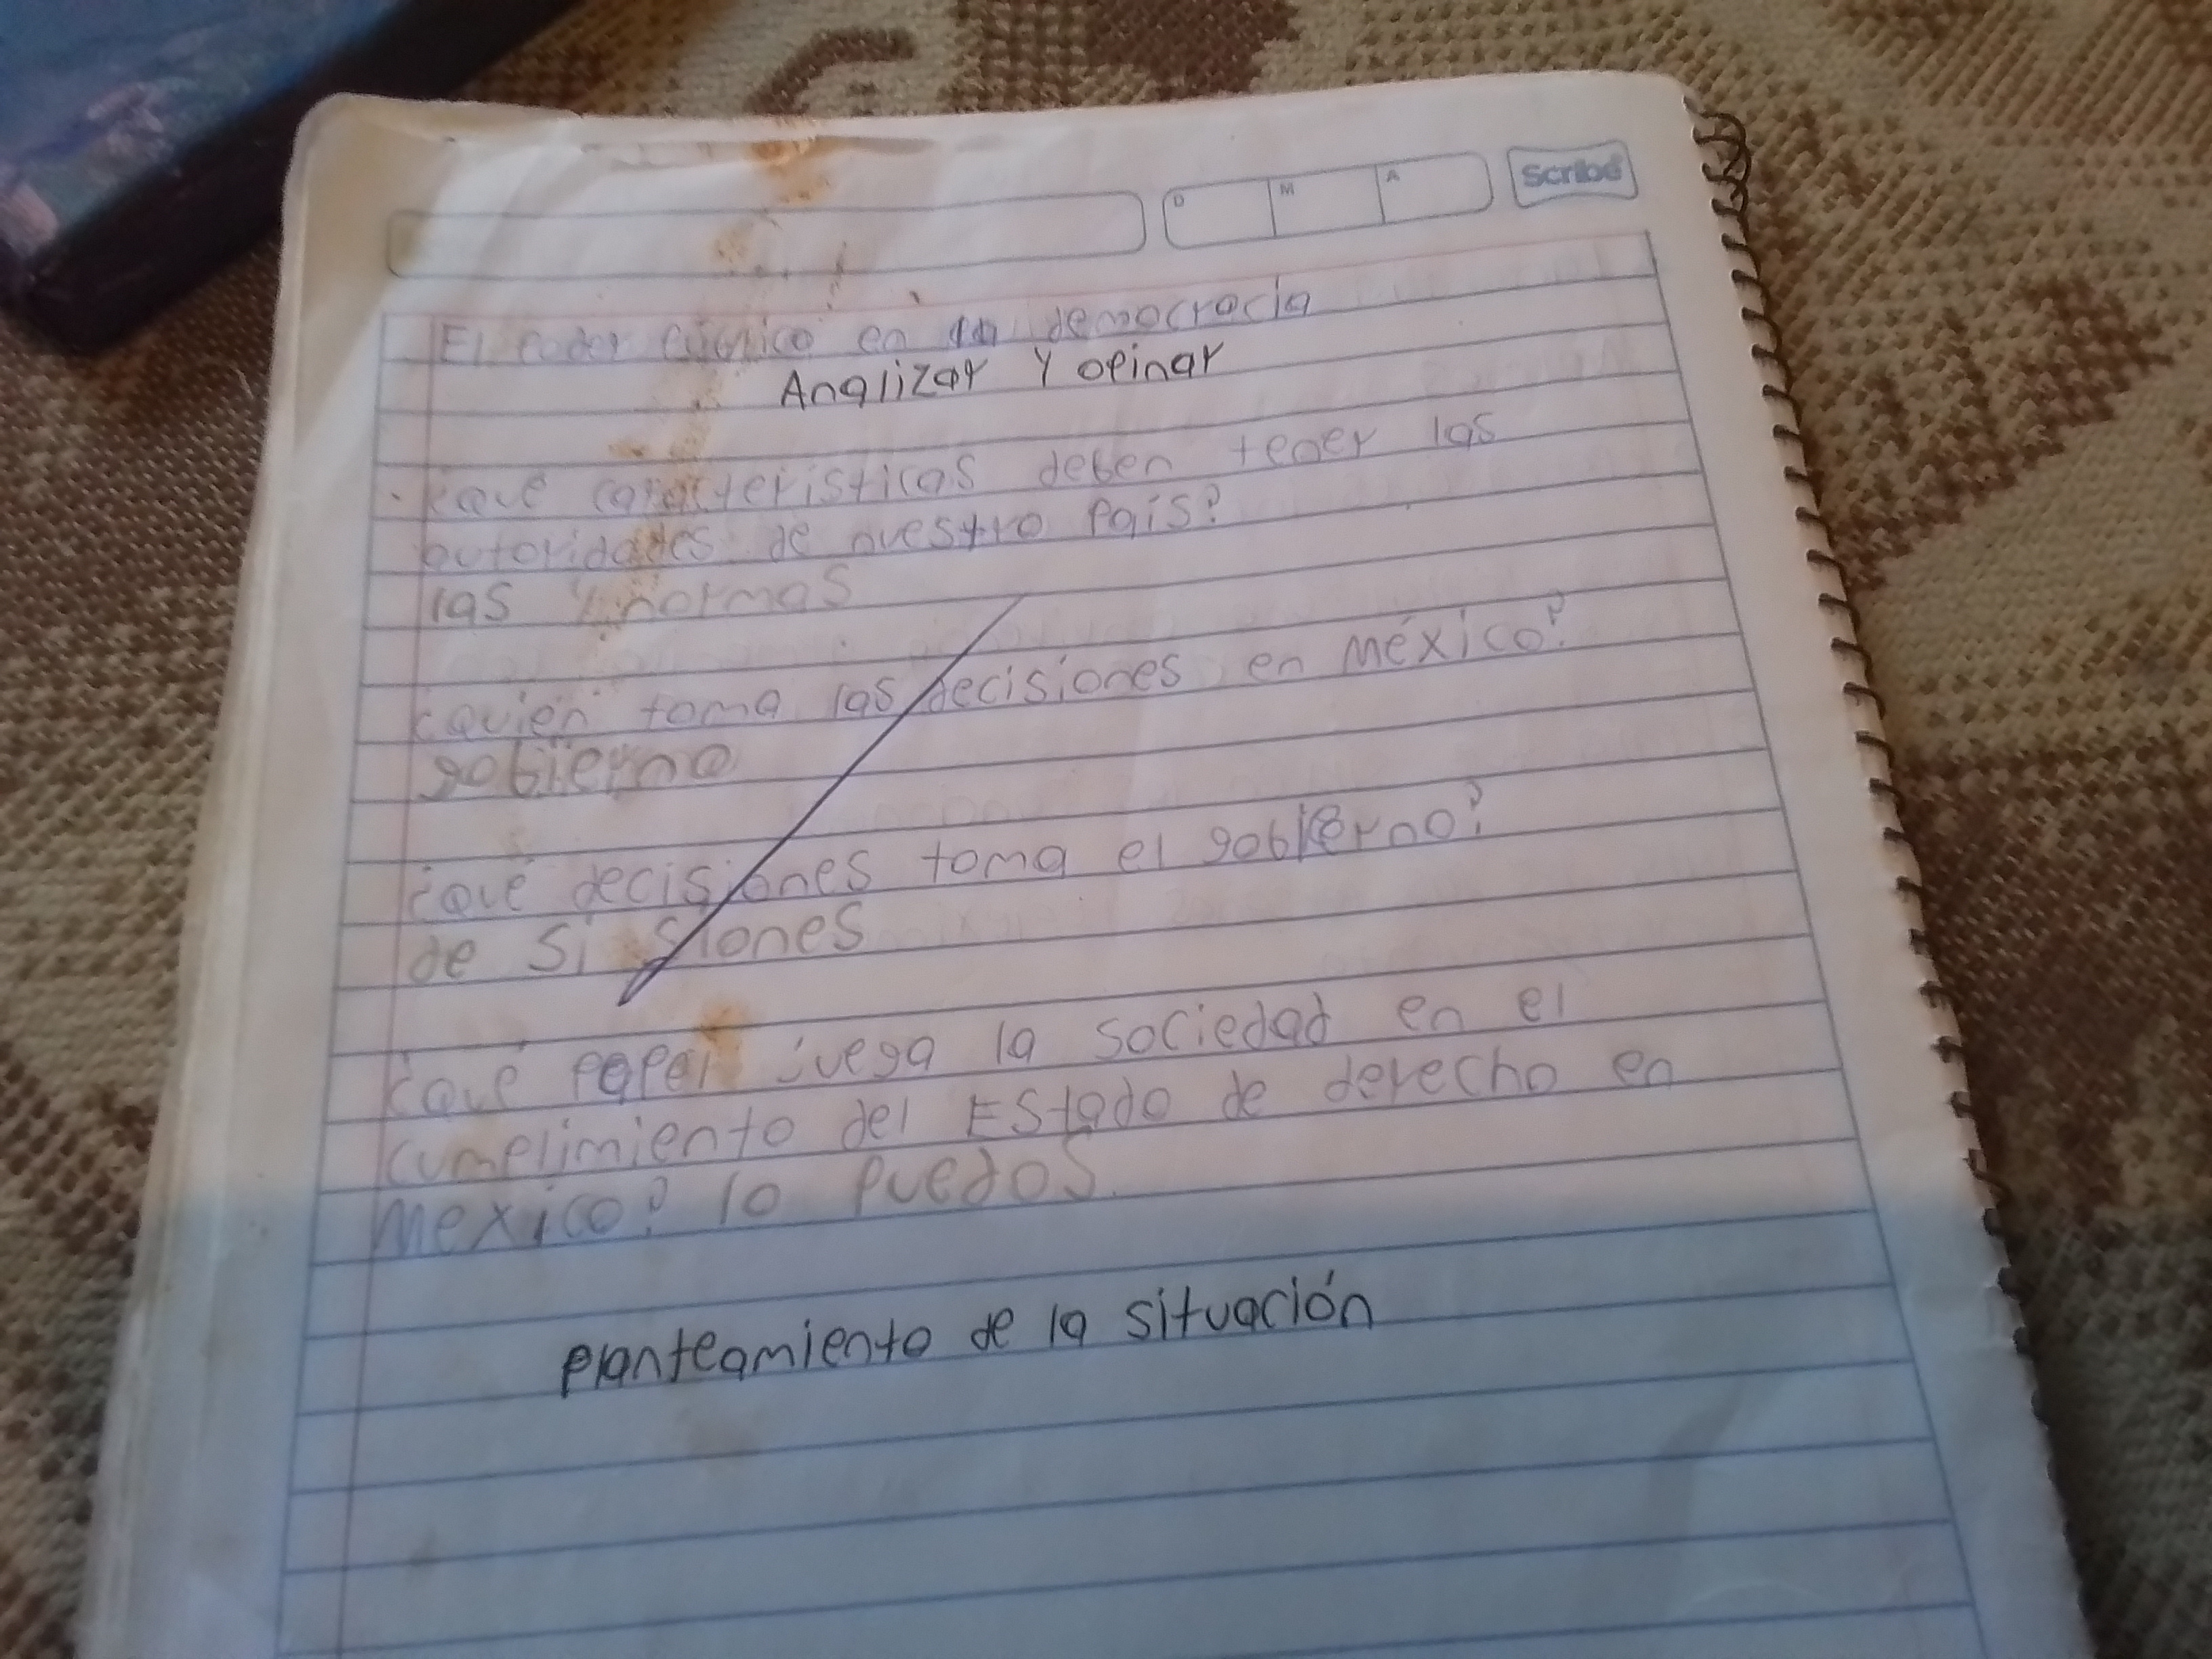 Scribe
D M A
El poder público en la democracia
Analizar y opinar
¿Qué características deben tener las
autoridades de nuestro País?
las y normas
¿Quién toma las decisiones en México?
gobierno
¿Qué decisiones toma el gobierno?
de Si Siones
¿Qué papel juega la sociedad en el
cumplimiento del Estado de derecho en
México? lo puedos
planteamiento de la situación